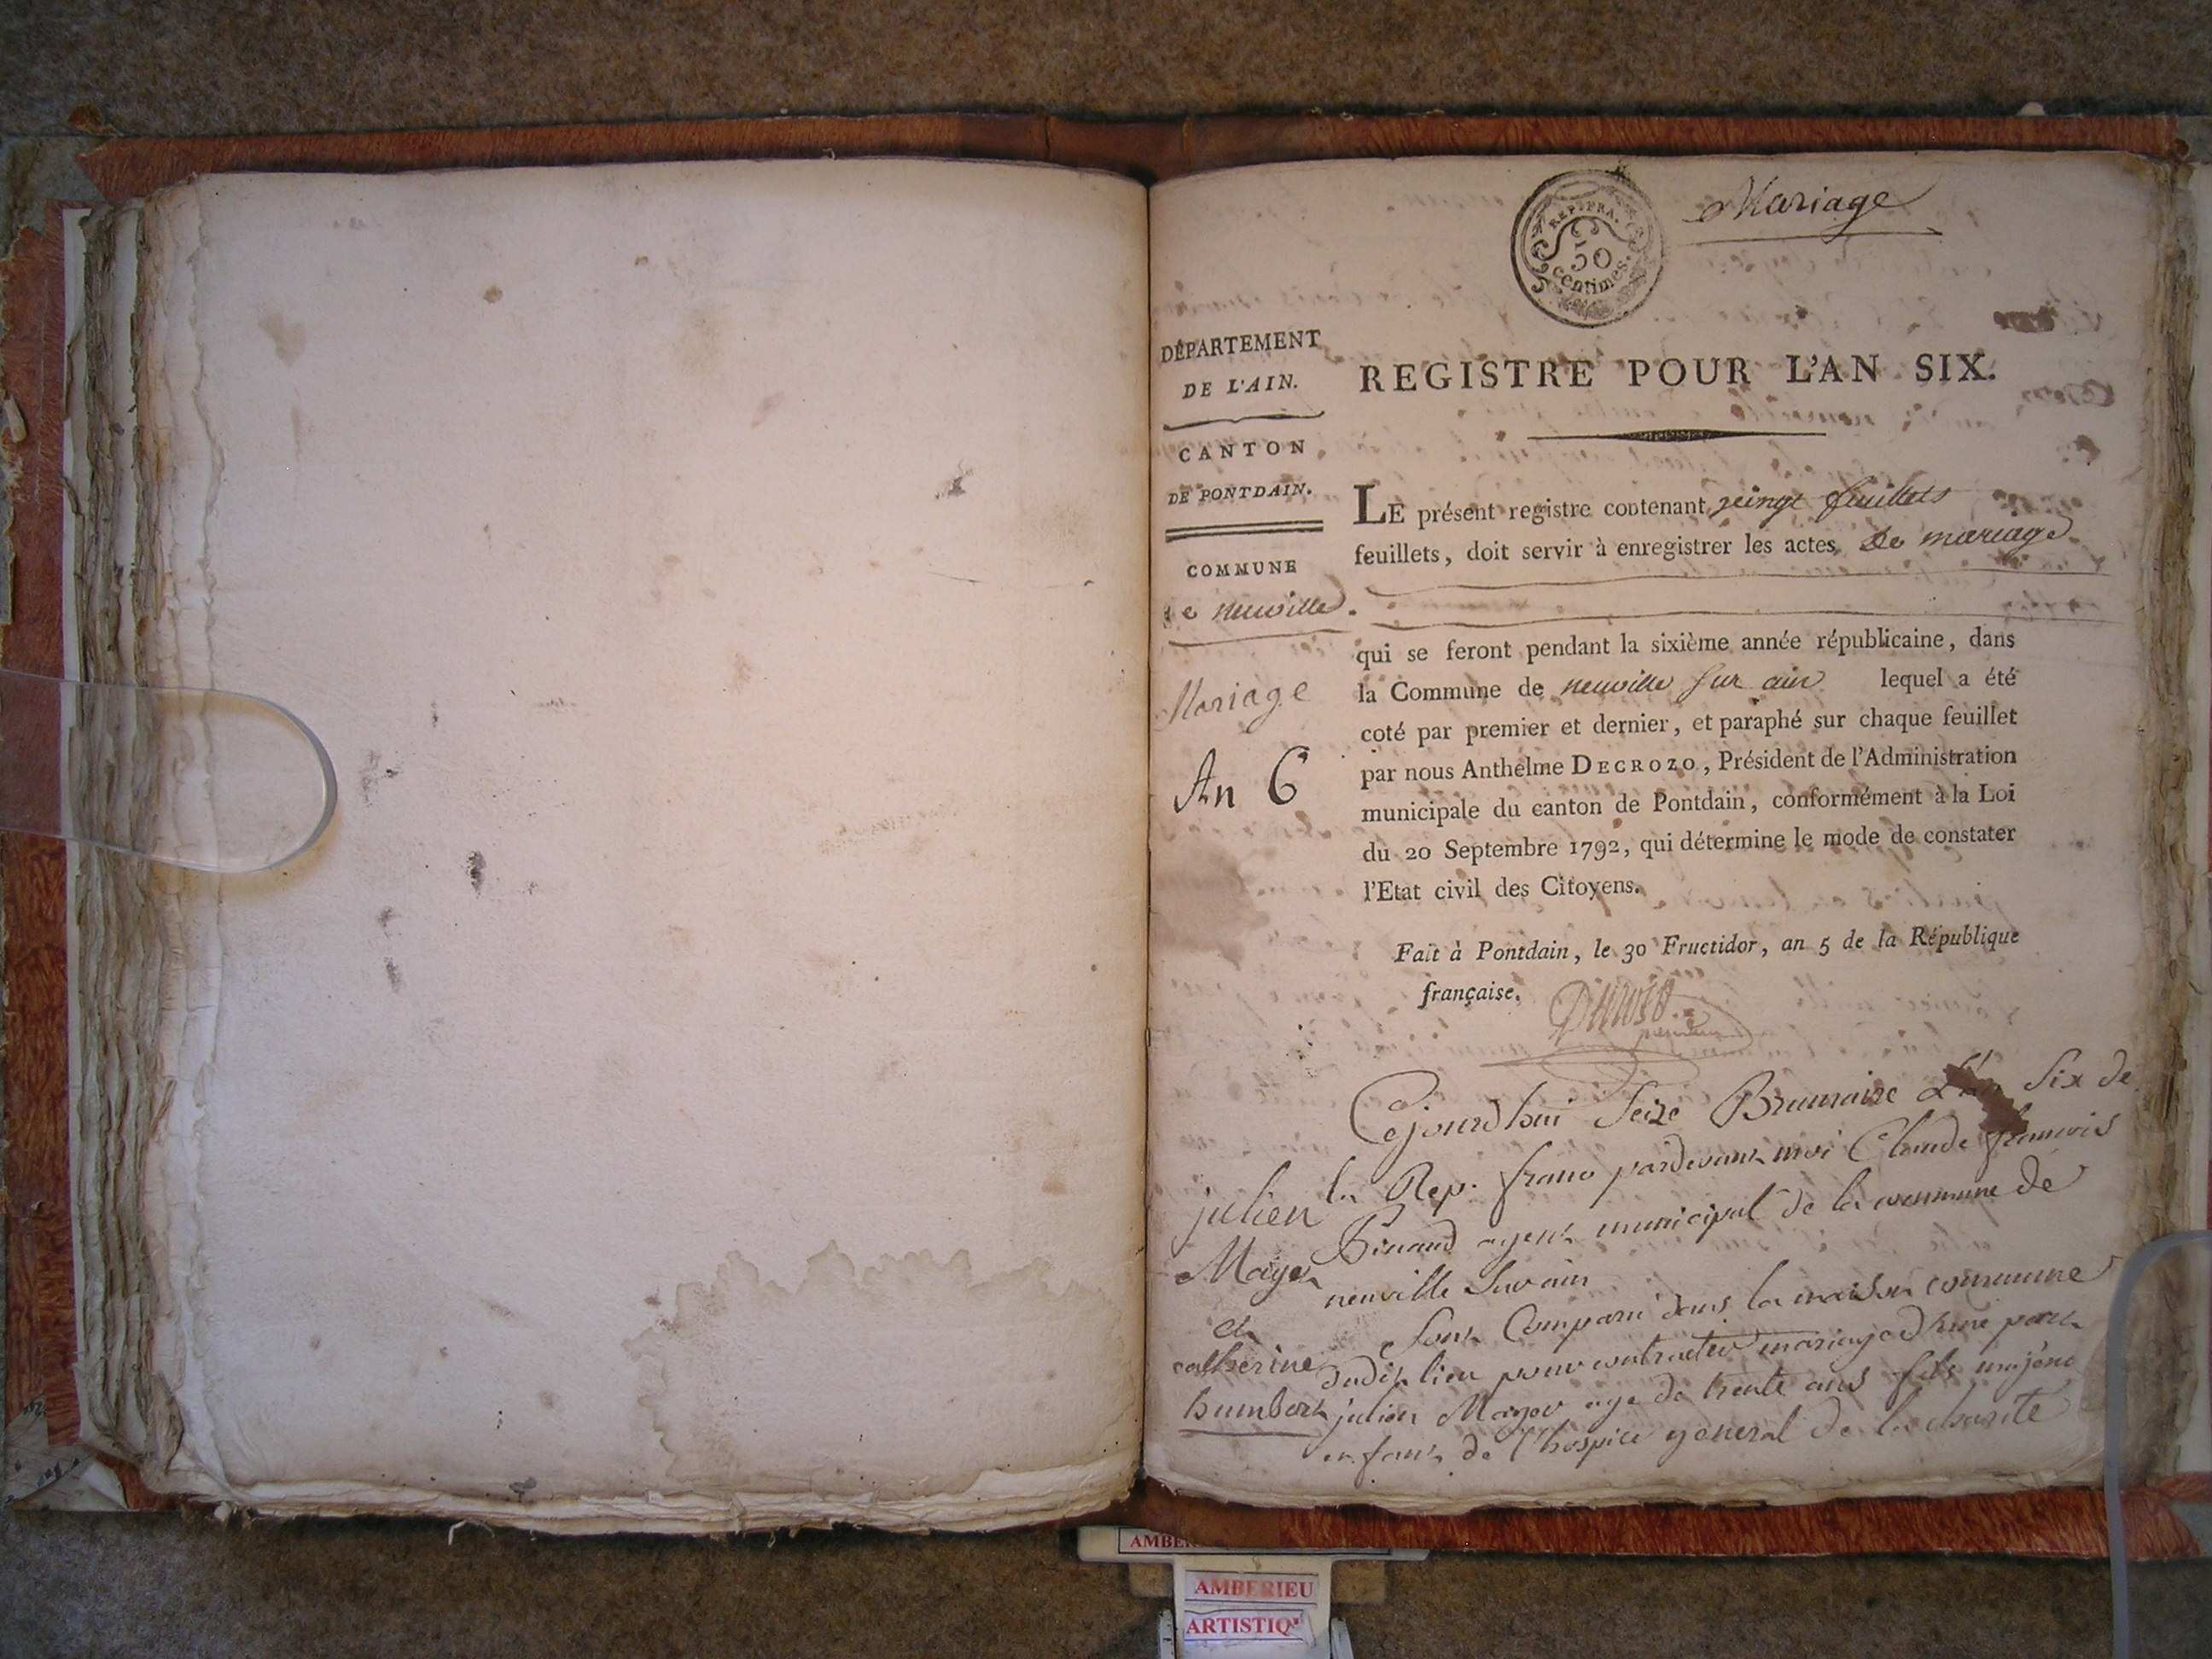 Mariage
REP. FRA.
50
centimes.
DÉPARTEMENT
DE L'AIN.
CANTON
DE PONTDAIN.
COMMUNE
de neuville.
Mariage
An 6
REGISTRE POUR L'AN SIX.
LE présent registre contenant vingt feuillets
feuillets, doit servir à enregistrer les actes de mariage
qui se feront pendant la sixième année républicaine, dans
la Commune de neuville sur ain lequel a été
coté par premier et dernier, et paraphé sur chaque feuillet
par nous Anthelme DECROZO, Président de l'Administration
municipale du canton de Pontdain, conformément à la Loi
du 20 Septembre 1792, qui détermine le mode de constater
l'Etat civil des Citoyens.
Fait à Pontdain, le 30 Fructidor, an 5 de la République
française.
Cejourdhui Seize Brumaire L'an Six de
la Rep. franc pardevant moi Claude francois
agent municipal de la commune de
neuville Sur ain
Sont Comparu dans la maison commune
dudit lieu pour contracter mariage d'une part
julien Mayer age de trente ans fils majeur
enfant de l'hospice general de la charite
julien
Mayer
et
catherine
humbert
AMBERIEU
ARTISTIQ